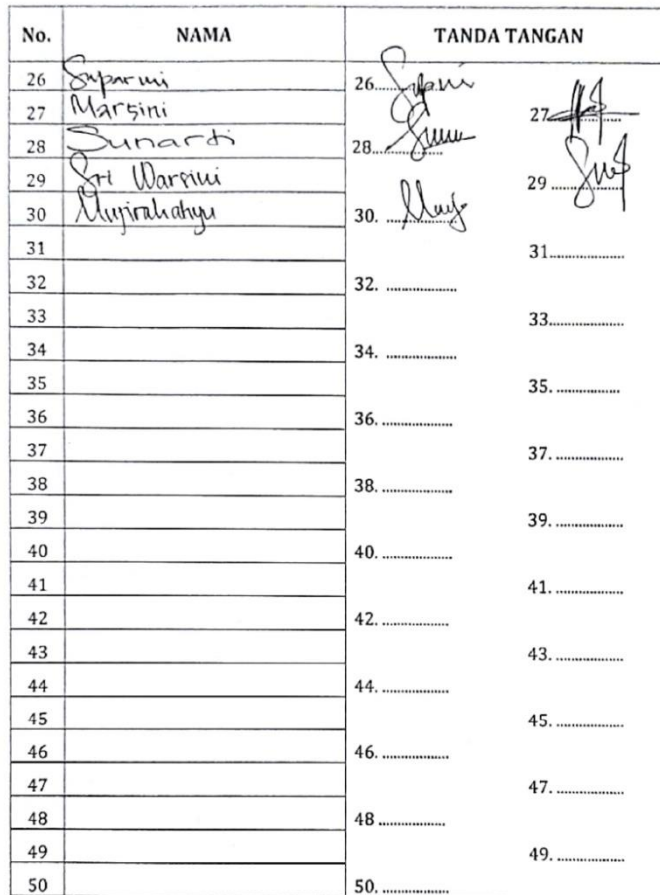 No. NAMA TANDA TANGAN
26 Suparmi 26.
27 Marsini 27
28 Sunarti 28.
29 Sri Warsini 29
30 Mujirahahyu 30.
31 31
32 32.
33 33
34 34.
35 35.
36 36.
37 37.
38 38.
39 39.
40 40.
41 41.
42 42.
43 43.
44 44.
45 45.
46 46.
47 47.
48 48
49 49.
50 50.